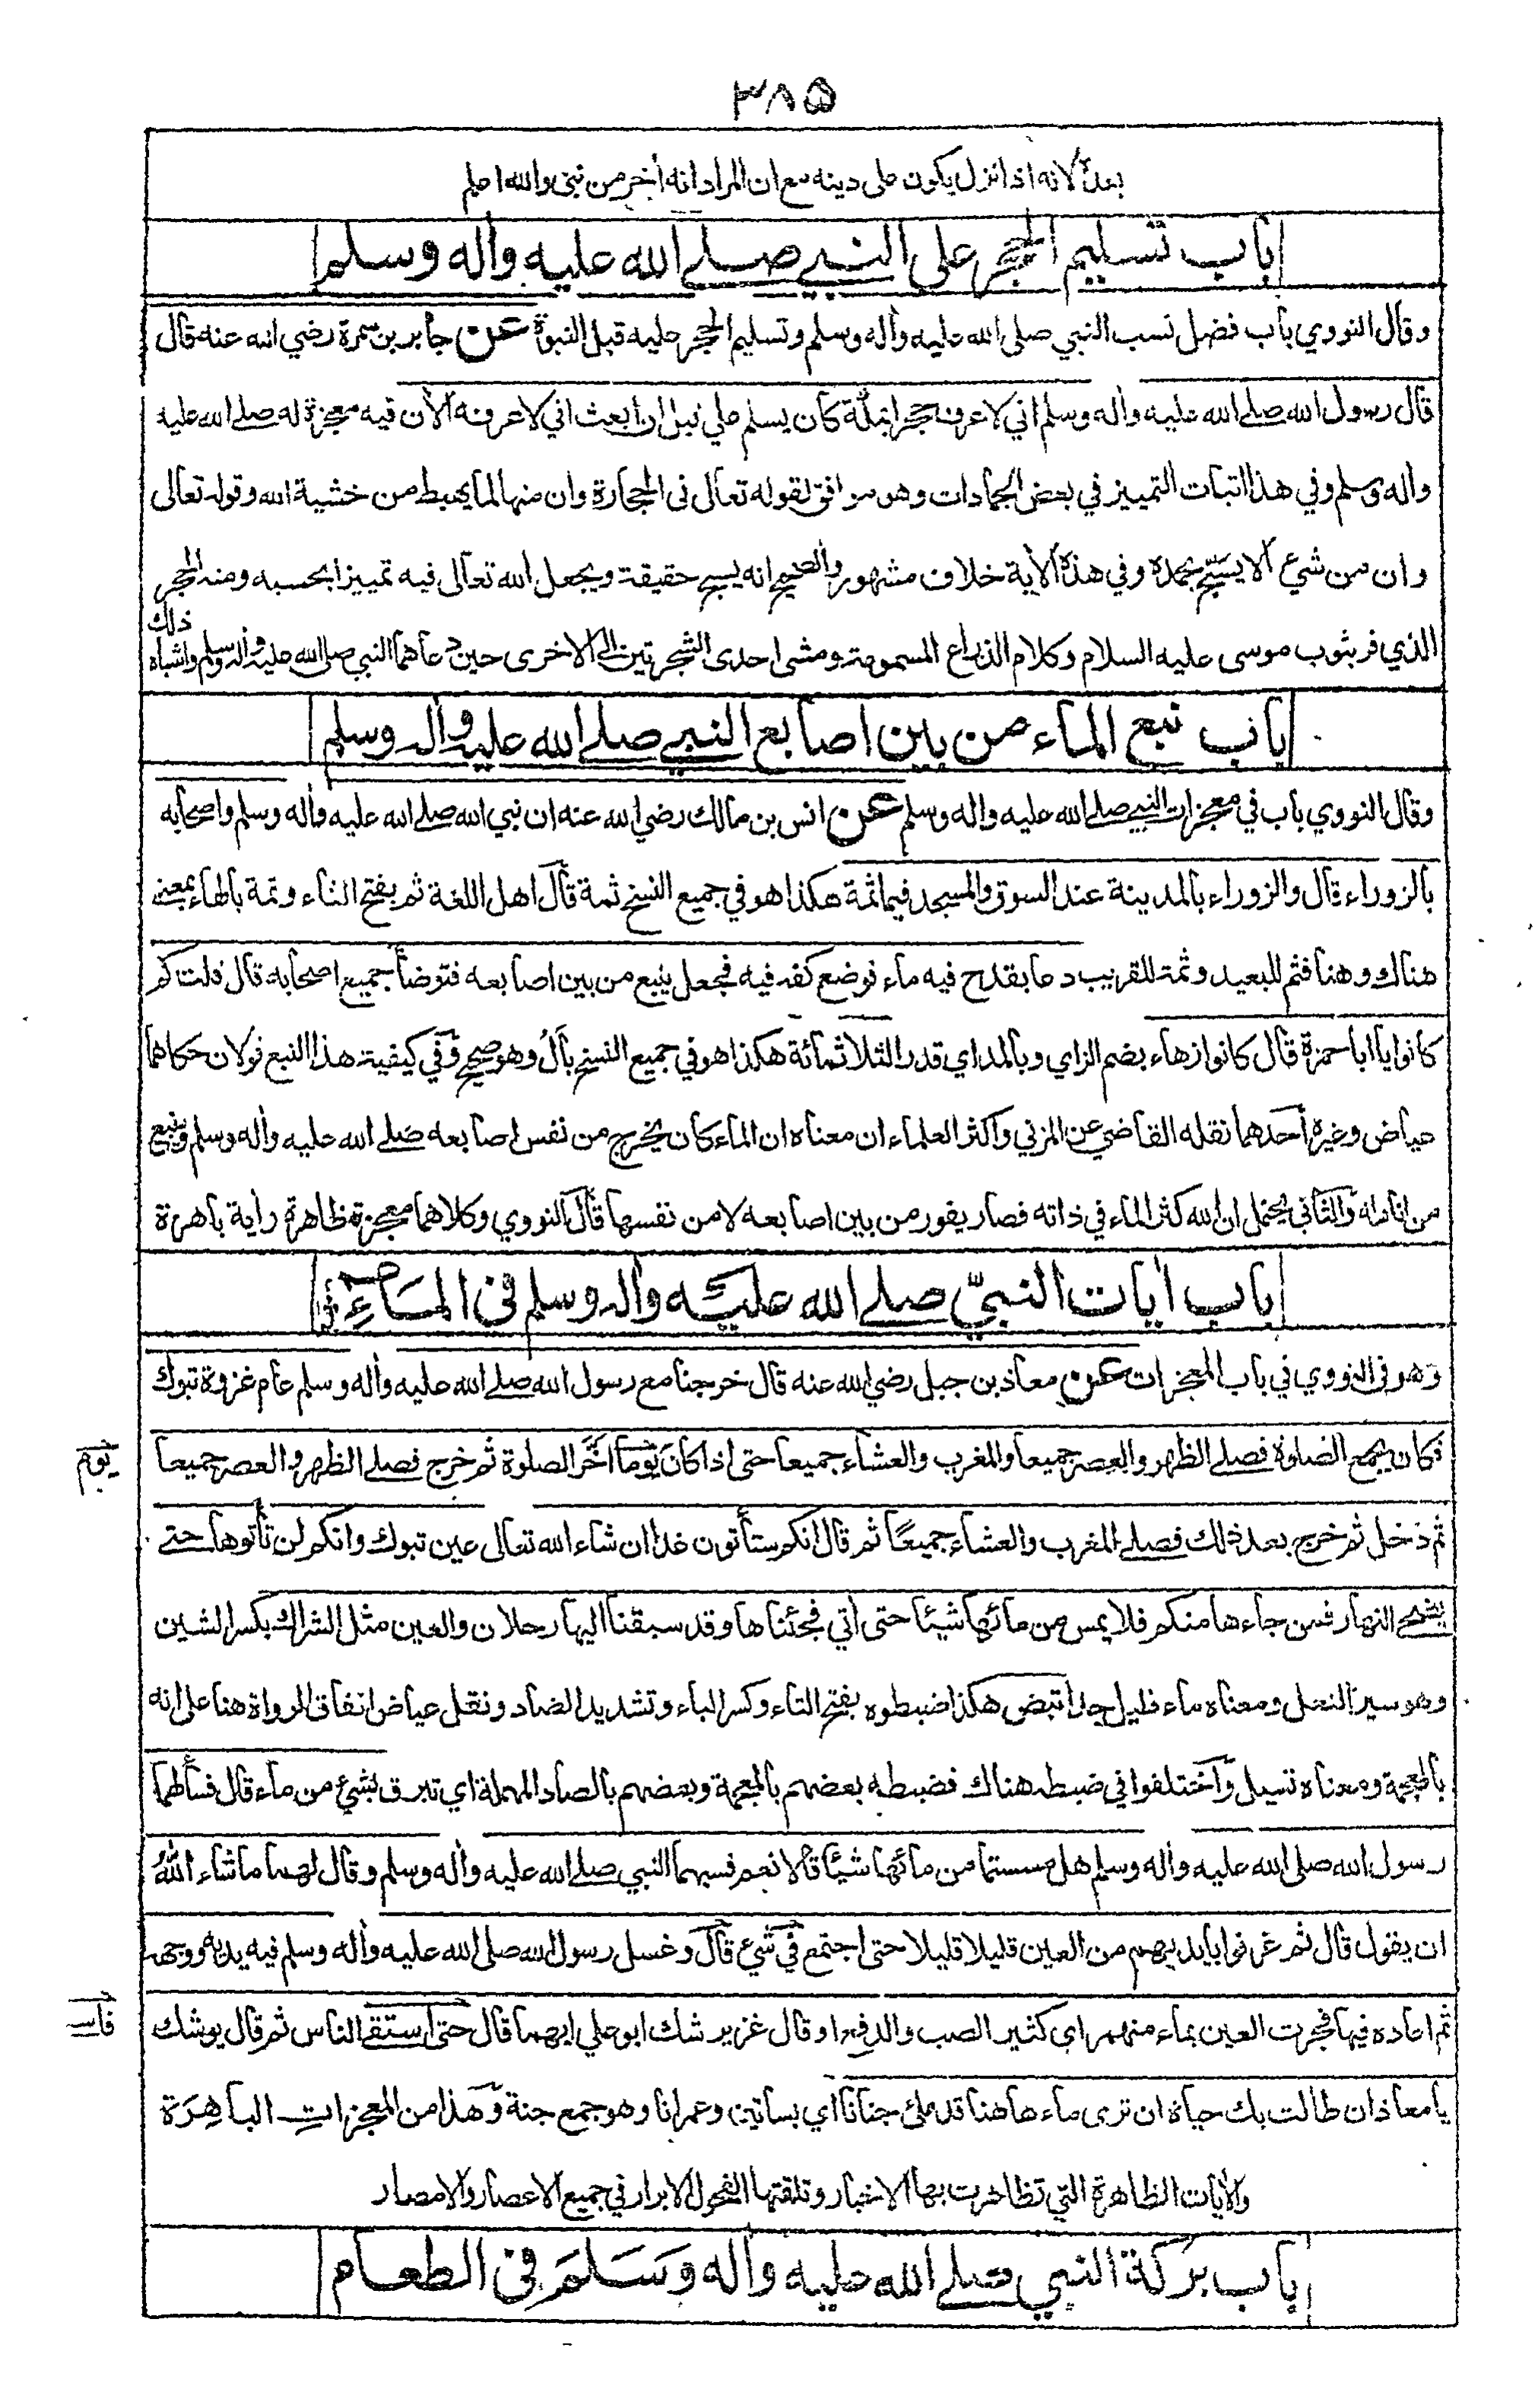 ٣٨٥
بعدة لانه اذا نزل يكون على دينه مع ان المراد انه أخر من نبئ والله اعلم
باب تسليم الحجر على النبي صلى الله عليه وأله وسلم
وقال النووي باب فضل نسب النبي صلى الله عليه وأله وسلم وتسليم الحجر عليه قبل النبوة عن جابر بن سمرة رضي الله عنه قال
قال رسول الله صلى الله عليه وأله وسلم اني لاعرف حجرا بمكة كان يسلم علي قبل ان ابعث اني لاعرفه الأن فيه معجزة له صلى الله عليه
وأله وسلم وفي هذا اثبات التمييز في بعض الجمادات وهو موافق لقوله تعالى في الحجارة وان منها لما يهبط من خشية الله وقوله تعالى
وان من شئ الا يسبح بحمده وفي هذه الأية خلاف مشهور والصحيح انه يسبح حقيقة ويجعل الله تعالى فيه تمييزا بحسبه ومنه الحجر
الذي فر بثوب موسى عليه السلام وكلام الذراع المسمومة ومشى احدى الشجرتين الى الاخرى حين دعاهما النبي صلى الله عليه وأله وسلم واشباه ذلك
باب نبع الماء من بين اصابع النبي صلى الله عليه وأله وسلم
وقال النووي باب في معجزات النبي صلى الله عليه واله وسلم عن انس بن مالك رضي الله عنه ان نبي الله صلى الله عليه وأله وسلم واصحابه
بالزوراء قال والزوراء بالمدينة عند السوق والمسجد فيما ثمة هكذا هو في جميع النسخ ثمة قال اهل اللغة ثم بفتح الثاء وثمة بالهاء بمعنى
هناك وهنا فثم للبعيد وثمة للقريب دعا بقدح فيه ماء فوضع كفه فيه فجعل ينبع من بين اصابعه فتوضأ جميع اصحابه قال قلت كم
كانوا يا ابا حمزة قال كانوا زهاء بضم الزاي وبالمد اي قدر الثلاثمائة هكذا هو في جميع النسخ بأل وهو صحيح وفي كيفية هذا النبع قولان حكاهما
عياض وغيره أحدهما نقله القاضي عن المزني واكثر العلماء ان معناه ان الماء كان يخرج من نفس اصابعه صلى الله عليه وأله وسلم وينبع
من اناملة والثاني يحتمل ان الله كثر الماء في ذاته فصار يفور من بين اصابعه لا من نفسها قال النووي وكلاهما معجزة ظاهرة وأية باهرة
باب أيات النبيّ صلى الله عليه وأله وسلم فى الماء
وهو فى النووي في باب المعجزات عن معاذ بن جبل رضي الله عنه قال خرجنا مع رسول الله صلى الله عليه وأله وسلم عام غزوة تبوك
فكان يجمع الصلوة فصلى الظهر والعصر جميعا والمغرب والعشاء جميعا حتى اذا كان يوما اخر الصلوة ثم خرج فصلى الظهر والعصر جميعا
يوم
ثم دخل ثم خرج بعد ذلك فصلى المغرب والعشاء جميعًا ثم قال انكم ستأتون غدا ان شاء الله تعالى عين تبوك وانكم لن تأتوها حتى
يضحى النهار فمن جاءها منكم فلا يمس من مائها شيئا حتى أتي فجئناها وقد سبقنا اليها رجلان والعين مثل الشراك بكسر الشين
وهو سير النعل ومعناه ماء قليل جدا تبض هكذا ضبطوه بفتح التاء وكسر الباء وتشديد الضاد ونقل عياض اتفاق الرواة هنا على انه
بالمعجمة ومعناه تسيل واختلفوا في ضبطه هناك فضبطه بعضهم بالمعجمة وبعضهم بالصاد المهملة اي تبرق بشئ من ماء قال فسألهما
رسول الله صلى الله عليه وأله وسلم هل مسستما من مائها شيئا قالا نعم فسبهما النبي صلى الله عليه وأله وسلم وقال لهما ماشاء اللهُ
ان يقول قال ثم غرفوا بايديهم من العين قليلا قليلا حتى اجتمع في شئ قال وغسل رسول الله صلى الله عليه وأله وسلم فيه يديه ووجهه
ثم اعاده فيها فجرت العين بماء منهمر اى كثير الصب والدفع او قال غزير شك ابو علي ايهما قال حتى استقى الناس ثم قال يوشك
يا معاذ ان طالت بك حياة ان ترى ماء هاهنا قد ملئ جنانا اي بساتين وعمرانا وهو جمع جنة وهذا من المعجزاتِ الباهِرَة
والأيات الظاهرة التي تظاهرت بها الاخبار وتلقتها الفحول الابرار في جميع الاعصار والامصار
باب بركة النبي صلى الله عليه وأله وَسَلمَ فِى الطعام